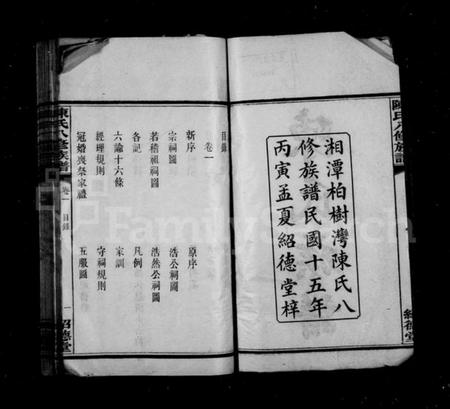 湘潭柏樹灣陳氏八
修族譜民國十五年
丙寅孟夏紹德堂梓
陳氏八修族譜
紹德堂
陳氏八修族譜 卷一 目錄 一 紹德堂
目錄
卷一
新序 原序
宗祠圖 浩公祠圖
若稽祖祠圖 浩然公祠圖
各記 凡例
六諭十六條 家訓
經理規則 守祠規則
冠婚喪祭家禮 五服圖
FamilySearch